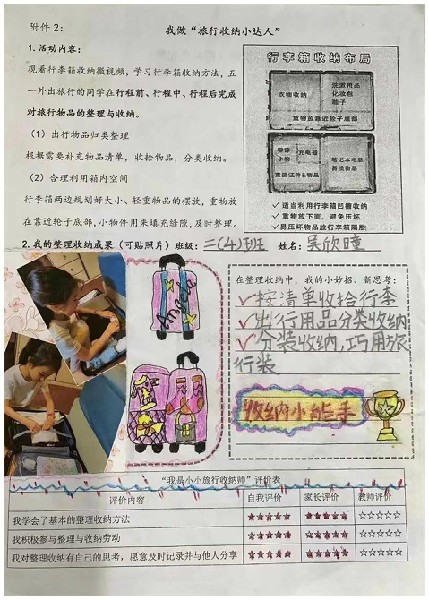 附件2:
我做“旅行收纳小达人”
1.活动内容:
观看行李箱收纳微视频，学习行李箱收纳方法，五
一外出旅行的同学在行程前、行程中、行程后完成
对旅行物品的整理与收纳。
（1）出行物品归类整理
根据需要补充物品清单，收拾物品，分类收纳。
（2）合理利用箱内空间
行李箱两边规划好大小、轻重物品的摆放，重物放
在靠近轮子底部，小物件用来填充缝隙，及时整理。
行李箱收纳布局
衣物收纳
洗漱用品
化妆包
鞋子
重物放靠近轮子底部
充电器
✓适当利用行李箱凹槽收纳
✓重鞋放下面，避免压坏
✓易压坏物品放行李箱隔层
2.我的整理收纳成果（可贴照片）班级: 二(4)班 姓名: 吴欣曈
在整理收纳中，我的小妙招、新思考:
✓按清单收拾行李
✓出行用品分类收纳
✓分装收纳,巧用放
行装
收纳小能手
“我是小小旅行收纳师”评价表
评价内容 自我评价 家长评价 教师评价
我学会了基本的整理收纳方法 ★★★★★ ★★★★★ ☆☆☆☆☆
我积极参与整理与收纳劳动 ★★★★★ ★★★★★ ☆☆☆☆☆
我对整理收纳有自己的思考，愿意及时记录并与他人分享 ★★★★★ ★★★★★ ☆☆☆☆☆